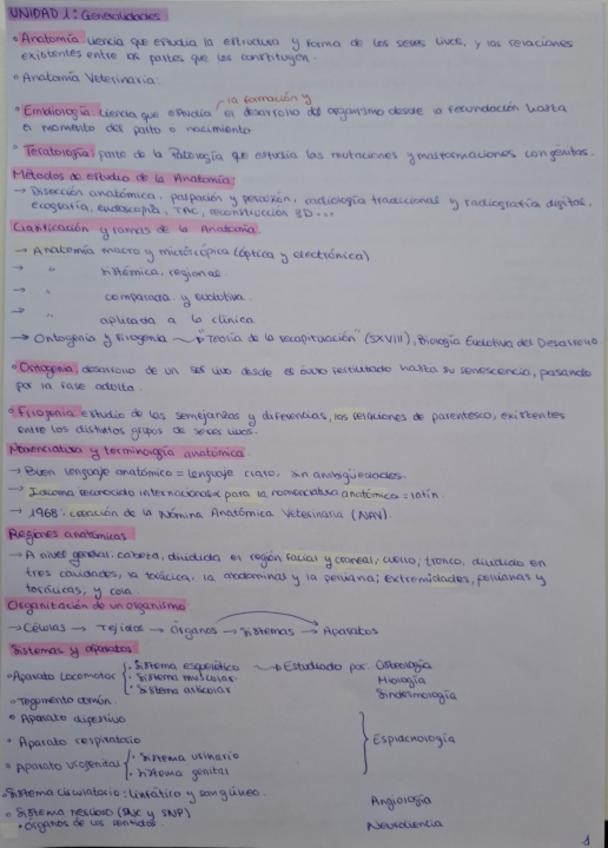 UNIDAD 1: Generalidades
• Anatomía: ciencia que estudia la estructura y forma de los seres vivos, y las relaciones
existentes entre las partes que los constituyen.
• Anatomía Veterinaria:
la formación y
• Embriología: ciencia que estudia el desarrollo del organismo desde la fecundación hasta
el momento del parto o nacimiento
• Teratología: parte de la Patología que estudia las mutaciones y malformaciones congénitas.
Métodos de estudio de la Anatomía:
→ Disección anatómica, palpación y percusión, radiología tradicional y radiografía digital,
ecografía, endoscopia, TAC, reconstrucción 3D...
Clasificación y ramas de la Anatomía.
→ Anatomía macro y microscópica (óptica y electrónica)
→ " sistémica, regional
→ " comparada y evolutiva.
→ " aplicada a la clínica
→ Ontogenia y Filogenia → "Teoría de la recapitulación" (SXVIII), Biología Evolutiva del Desarrollo
• Ontogenia, desarrollo de un ser vivo desde el óvulo fertilizado hasta su senescencia, pasando
por la fase adulta.
• Filogenia estudio de las semejanzas y diferencias, las relaciones de parentesco, existentes
entre los distintos grupos de seres vivos.
Nomenclatura y terminología anatómica.
→ Buen lenguaje anatómico = lenguaje claro, sin ambigüedades.
→ Idioma reconocido para la nomenclatura anatómica = latín.
→ 1968: creación de la Nómina Anatómica Veterinaria (NAV).
Regiones anatómicas
→ A nivel general: cabeza, dividida en región facial y craneal, cuello; tronco, dividido en
tres cavidades, la torácica, la abdominal y la pelviana; extremidades, pelvianas y
torácicas, y cola.
Organización de un organismo
→ Células → Tejidos → Órganos → Sistemas → Aparatos
Sistemas y aparatos
• Aparato Locomotor { • Sistema esquelético → Estudiado por: Osteología
• Sistema muscular Miología
• Sistema articular Sindesmología
• Tegumento común.
• Aparato digestivo
• Aparato respiratorio } Esplacnología
• Aparato Urogenital { • Sistema urinario
• Sistema genital
• Sistema circulatorio: linfático y sanguíneo. Angiología
• Sistema nervioso (SNC y SNP)
• Órganos de los sentidos. Neurociencia
1